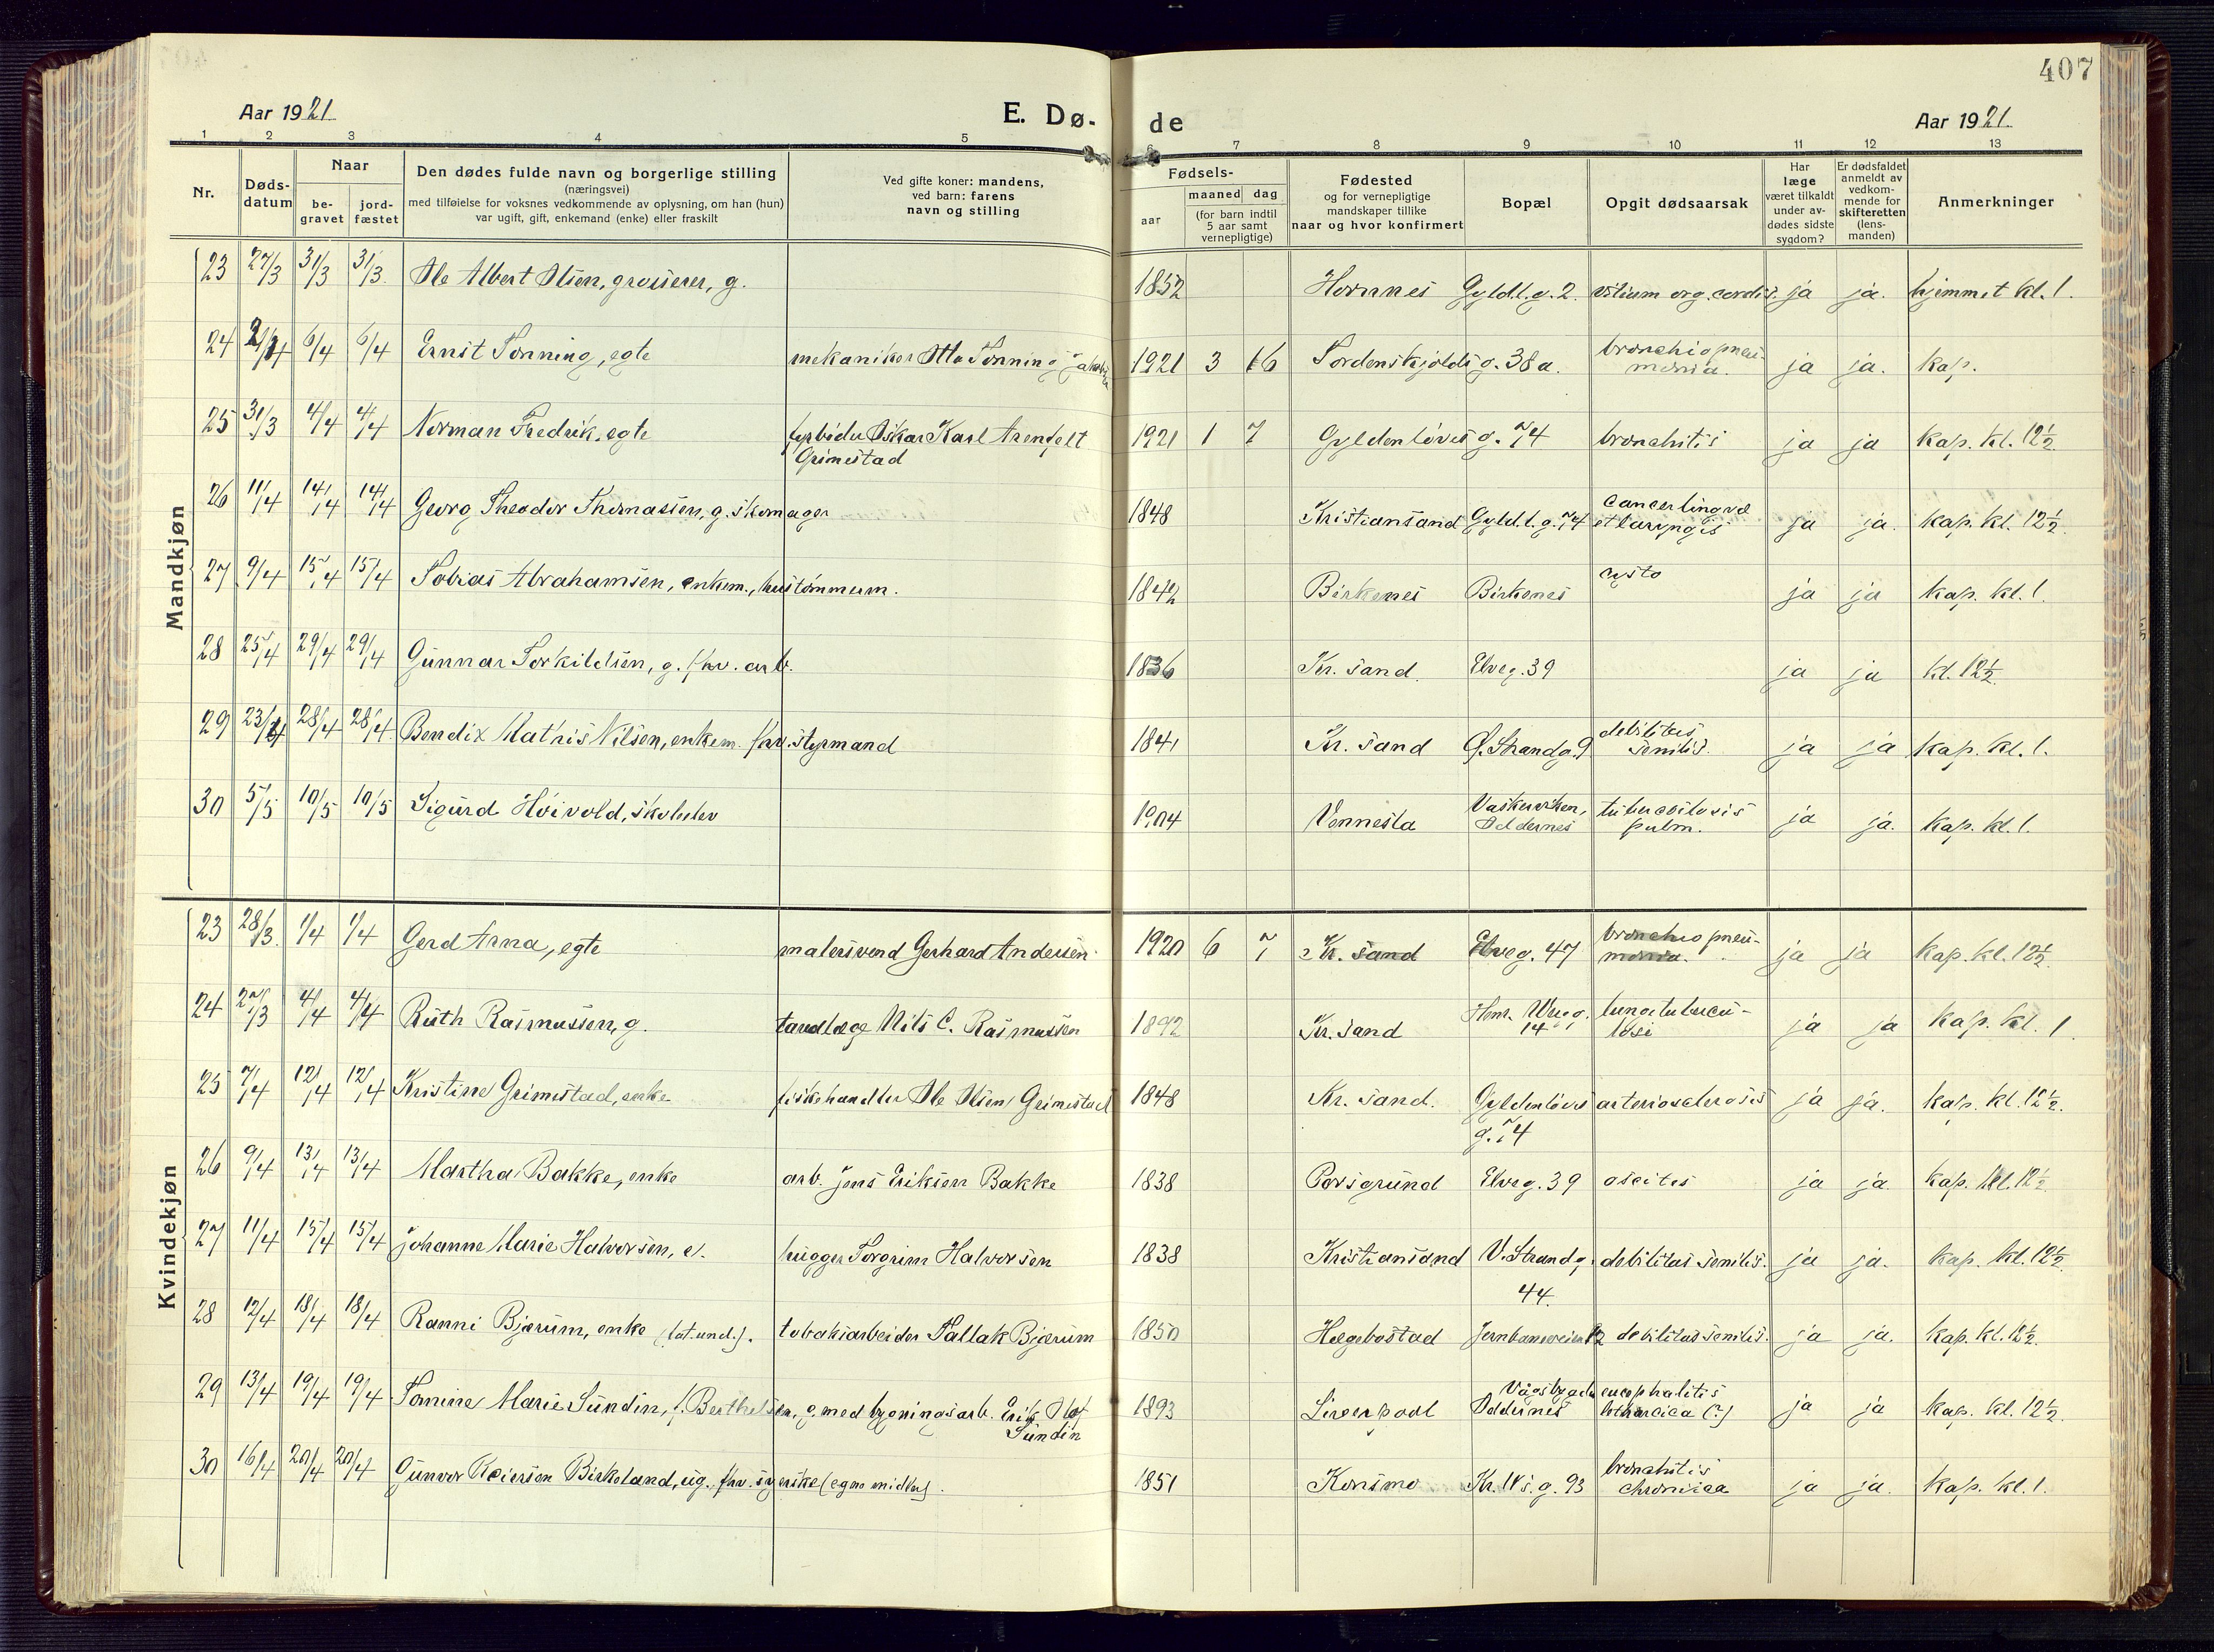 407
Aar 1921
E. Dø-
de
Aar 1921.
1 2 3 4 5 6 7 8 9 10 11 12 13
Nr.
Døds-
datum
Naar
be-
gravet
jord-
fæstet
Den dødes fulde navn og borgerlige stilling
(næringsvei)
med tilføielse for voksnes vedkommende av oplysning, om han (hun)
var ugift, gift, enkemand (enke) eller fraskilt
Ved gifte koner: mandens,
ved barn: farens
navn og stilling
Fødsels-
aar
maaned dag
(for barn indtil
5 aar samt
vernepligtige)
Fødested
og for vernepligtige
mandskaper tillike
naar og hvor konfirmert
Bopæl
Opgit dødsaarsak
Har
læge
været tilkaldt
under av-
dødes sidste
sygdom?
Er dødsfaldet
anmeldt av
vedkom-
mende for
skifteretten
(lens-
manden)
Anmerkninger
Mandkjøn
23 27/3 31/3 31/3 Ole Albert Olsen, grosserer, g. 1852 Hornnes Gyldl.g. 2. vitium org. cordis. ja ja. hjemmet kl. 1.
24 6/4 6/4 Ernst Tønning, egte mekaniker Otto Tønning 1921 3 16 Tordenskjolds g. 38a. bronchiopneu-
monia. ja ja. kap.
25 31/3 4/4 4/4 Norman Fredrik, egte fyrbøder Oskar Karl Arenfelt
Grimestad 1921 1 7 Gyldenløves g. 74 bronchitis ja ja kap. kl. 12½.
26 11/4 14/4 14/4 Georg Theodor Thomassen, g. skomager 1848 Kristiansand Gyld.l.g. 74 cancer lingvæ
et laryngis ja ja. kap. kl. 12½.
27 9/4 15/4 15/4 Tobias Abrahamsen, enkem., hustømmerm. 1842 Birkenes Birkenes cysto ja ja kap. kl. 1.
28 25/4 29/4 29/4 Gunnar Torkildsen, g. fhv. arb. 1836 Kr. sand. Elveg. 39 ja ja kl. 12½.
29 23/4 28/4 28/4 Bendix Mathis Nilsen, enkem. fhv. styrmand 1841 Kr. sand Ø. Strandg. 9 debilitas
senilis. ja ja kap. kl. 1.
30 5/5 10/5 10/5 Sigurd Høivold, skoleelev 1904 Vennesla Vaskerveien,
Oddernes tuberculosis
pulm. ja ja. kap. kl. 1.
Kvindekjøn
23 28/3. 1/4 1/4 Gerd Arna, egte malersvend Gerhard Andersen. 1920 6 7 Kr. sand Elveg. 47 bronchiopneu-
monia. ja ja kap. kl. 12½.
24 27/3 4/4 4/4 Ruth Rasmussen, g. tandlæge Nils C. Rasmussen 1892 Kr. sand Henr. Werg.g.
14 lungetubercu-
losi ja ja kap. kl. 1
25 7/4 12/4 12/4 Kristine Grimestad, enke fiskehandler Ole Olsen Grimestad 1848 Kr. sand. Gyldenløves
g. 74 arteriosclerosis ja ja. kap. kl. 12½.
26 9/4 13/4 13/4 Martha Bakke, enke arb. Jens Eriksen Bakke 1838 Porsgrund Elveg. 39 ascites ja ja. kap. kl. 12½
27 11/4 15/4 15/4 Johanne Marie Halvorsen, e. hugger Torgrim Halvorsen 1838 Kristiansand V. Strandg.
44. debilitas senilis. ja ja. kap. kl. 12½.
28 12/4 18/4 18/4 Ranni Bjærum, enke (fat.und.). tobaksarbeider Tallak Bjærum 1850 Hægebostad Jernbaneveien 12 debilitas senilis. ja ja. kap. kl. 12½.
29 13/4 19/4 19/4 Tomine Marie Sundin, f. Berthelsen, g. med bygningsarb. Erik Olof
Sundin 1893 Liverpool Vågsbygd
Oddernes encephalitis
letharcica (?) ja ja kap. kl. 12½.
30 16/4 20/4 20/4 Gunvor Reiersen Birkeland, ug. fhv. syerske (egne midler). 1851 Konsmo Kr. IVs. g. 93 bronchitis
chronica ja ja. kap. kl. 1.